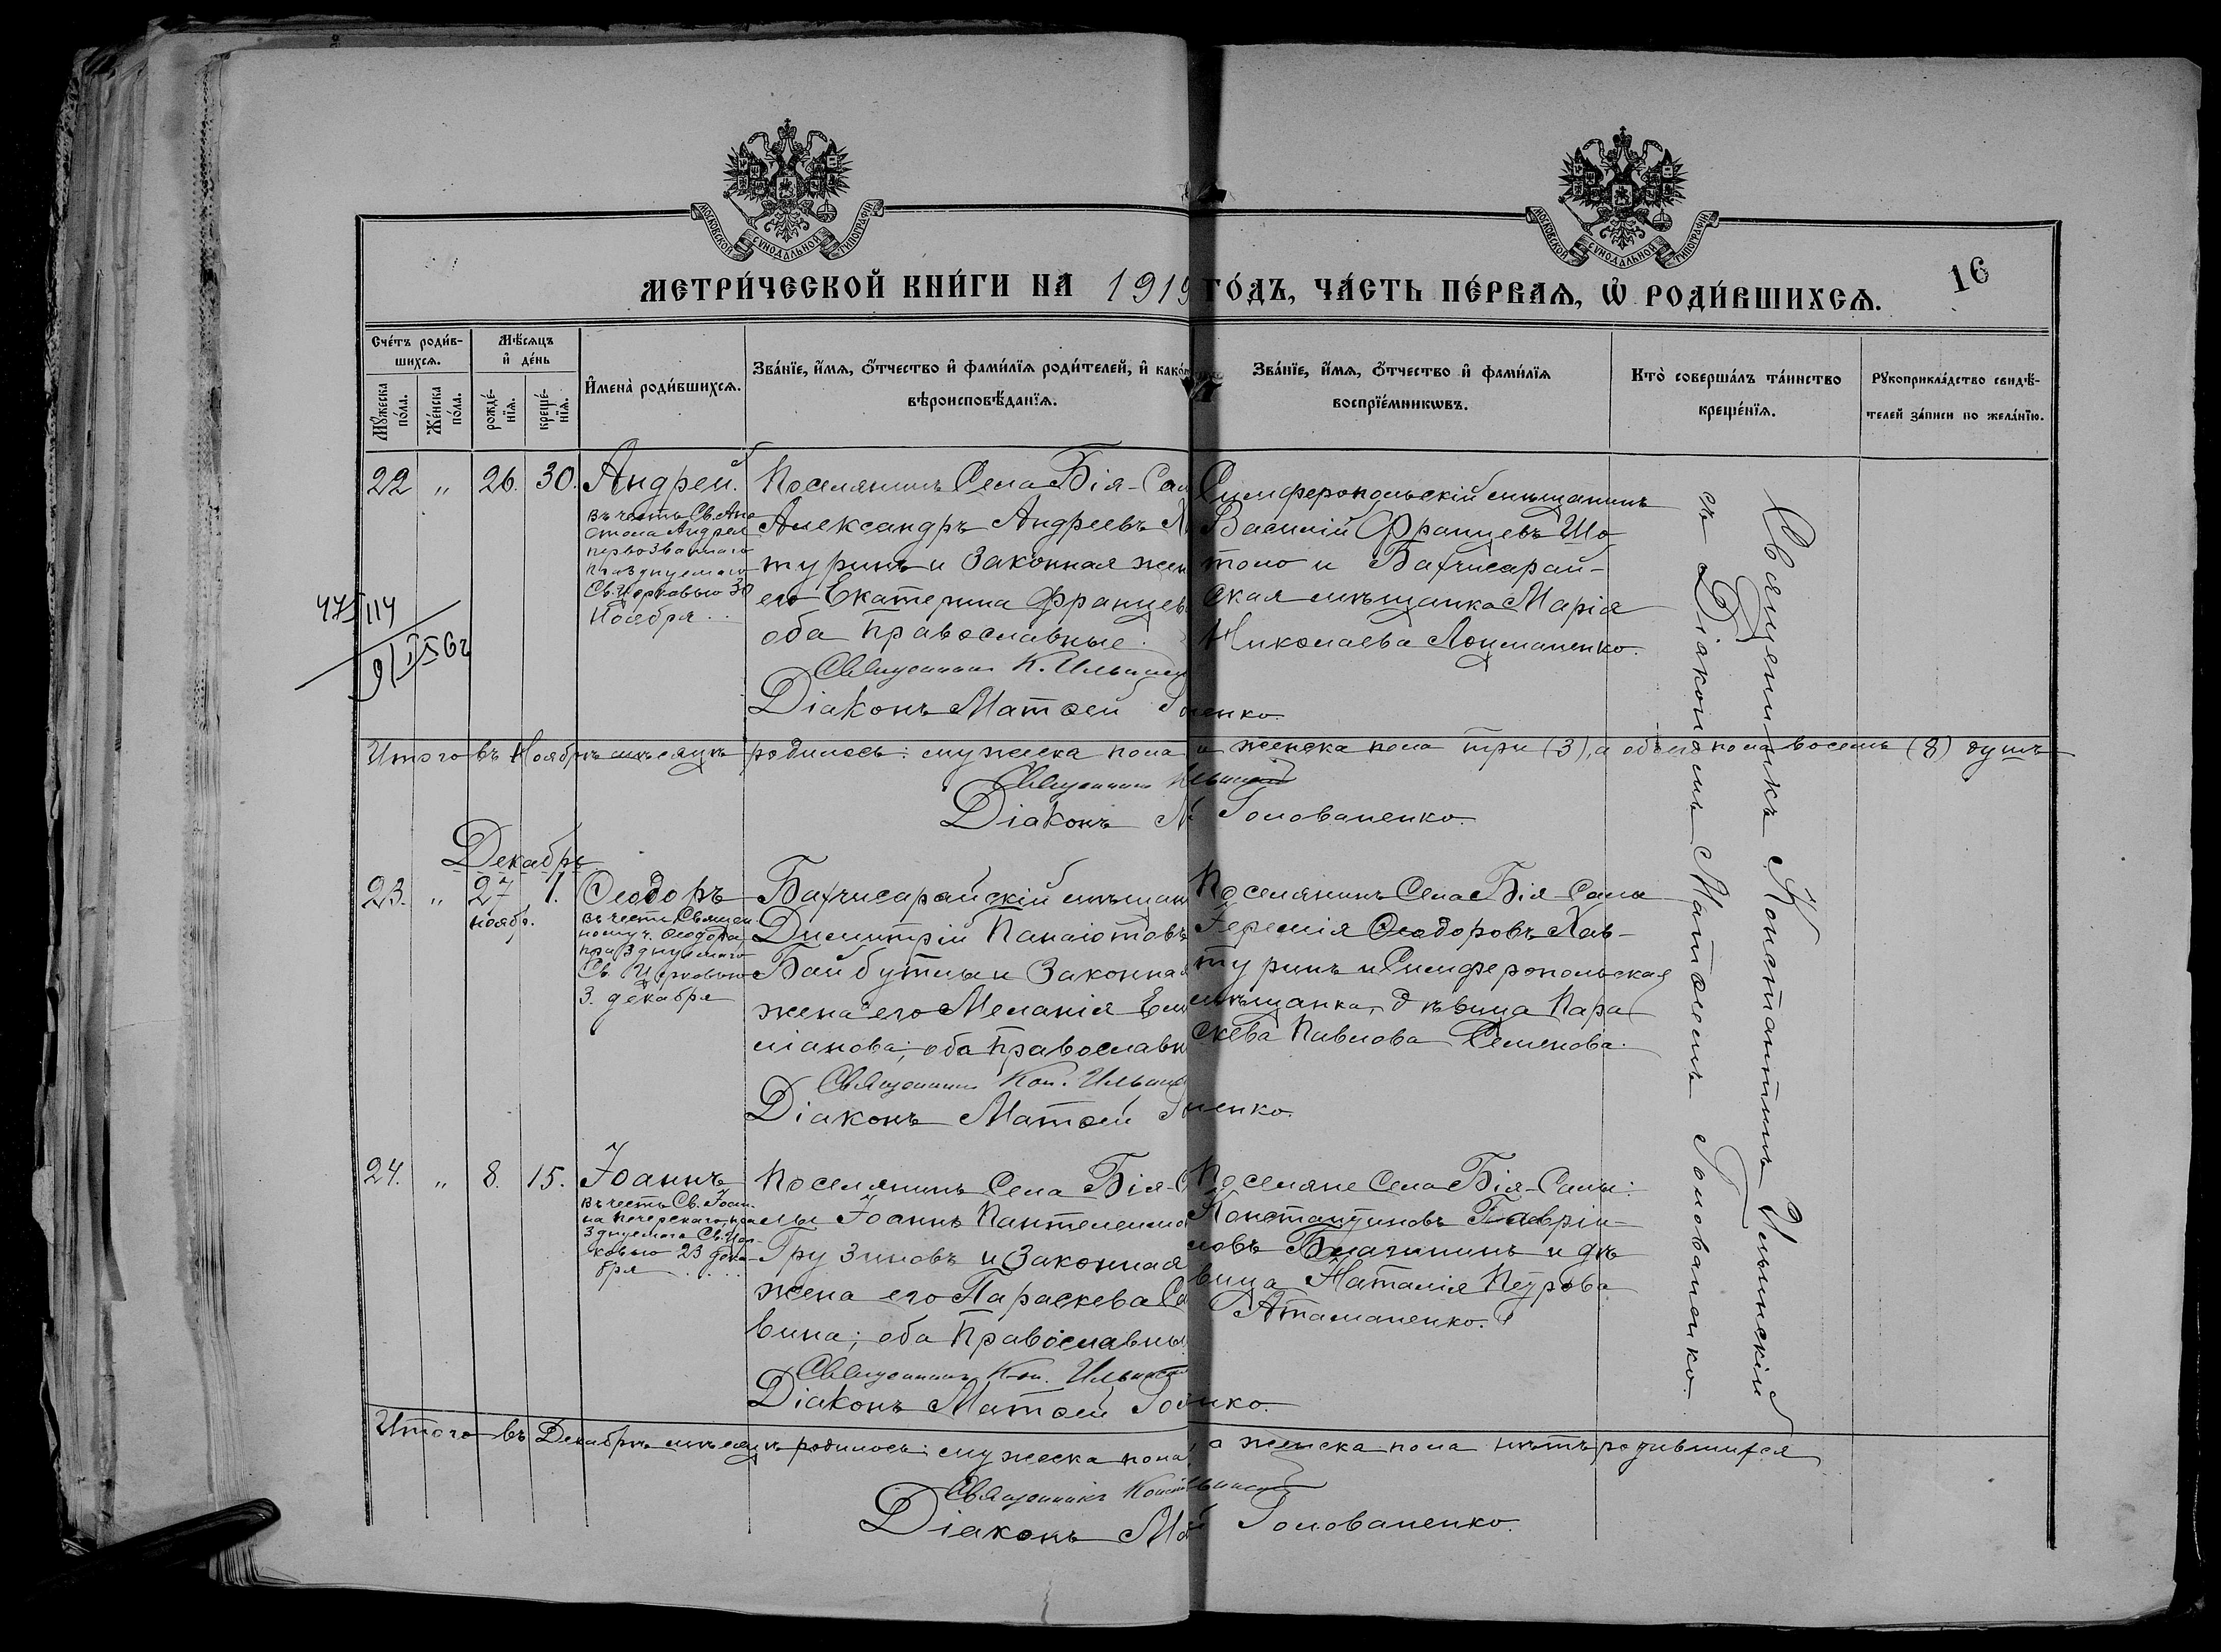 МОСКОВСКОЙ СУНОДАЛЬНОЙ ТИПОГРАФІИ
МОСКОВСКОЙ СУНОДАЛЬНОЙ ТИПОГРАФІИ
МЕТРИ́ЧЕСКОЙ КНИ́ГИ НА 1919 ГО́ДЪ, ЧА́СТЬ ПЕ́РВАЯ, Ѡ РОДИ́ВШИХСЯ.
16
Сче́тъ роди́в-
шихся.
Мѣ́сяцъ
и҆ де́нь
Мꙋ́жеска
по́ла.
Же́нска
по́ла.
рожде́-
нїя.
креще́-
нїя.
И҆мена̀ роди́вшихся.
Зва́нїе, и҆́мя, ѻ҆́тчество и҆ фами́лїя роди́телей, и҆ како́
вѣроисповѣ́данїя.
Зва́нїе, и҆́мя, ѻ҆́тчество и҆ фами́лїя
воспрїе́мникѡвъ.
Кто̀ соверша́лъ та́инство
креще́нїя.
Рꙋкоприкла́дство свидѣ́-
телей за́писи по жела́нїю.
22 " 26. 30. Андрей.
въ честь Св. Апо
стола Андрея
первозваннаго
празднуемаго
Св. Церковью 30
Ноября
475/114
9/I 56г
Поселянинъ Села Бія-Сал
Александръ Андреевъ
туринъ и Законная жен
его Екатерина Францев
оба православные.
Священникъ К. Ильинск
Діаконъ Матѳей Го
ненко.
Симферопольскій мѣщанинъ
Василій Францевъ Що
толо и Бахчисарай-
ская мѣщанка Марія
Николаева Лоиманенко.
Итого въ Ноябрѣ мѣсяцѣ родилось: мужеска пола и женска пола три (3), а обоего пола восемь (8) душъ
Священникъ Ильинскій
Діаконъ М Голованенко.
Декабрь
23. " 27 1. Ѳеодоръ
ноябр.
въ честь Священ
номуч. Ѳеодора,
празднуемаго
Св. Церковью
3. декабря
Бахчисарайскій мѣщан
Димитрій Панаіотовъ
Байбутлы и Законная
жена его Меланія Еми
ліанова; оба православн
Священникъ Кон. Ильинск
Діаконъ Матѳей Го
ненко.
Поселянинъ Села Бія-Салы
Іеремія Ѳеодоровъ Хав-
туринъ и Симферопольская
мѣщанка, дѣвица Пара
скева Павлова Семенова.
24. " 8. 15. Іоаннъ
въ честь Св. Іоан
на Печерскаго, пра
зднуемаго Св. Цер-
ковью 23 дека-
бря
Поселянинъ Села Бія-С
лы Іоаннъ Пантелеимо
Грузиновъ и Законная
жена его Параскева Са
вина; оба Православны
Священникъ Кон. Ильинскі
Діаконъ Матѳей Го
нко.
Поселяне Села Бія-Салы:
Константиновъ Гавріи-
ловъ Влагининъ и дѣ
вица Наталія Петрова
Атаманенко.
Священникъ Константинъ Ильинскій
съ Діакономъ Матѳеемъ Голованенко
Итого въ Декабрѣ мѣсяцѣ родилось: мужеска пола, а женска пола нѣтъ родившихся
Священникъ Конст Ильинскій
Діаконъ Ма й Голованенко.